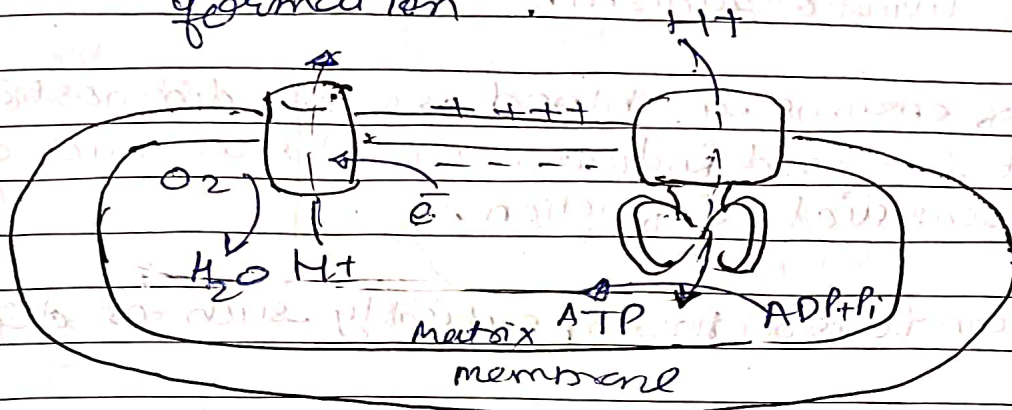 formation.
H+
+ + + +
- - - -
O2
e-
H2O H+
ATP ADP+Pi
Matrix
membrane